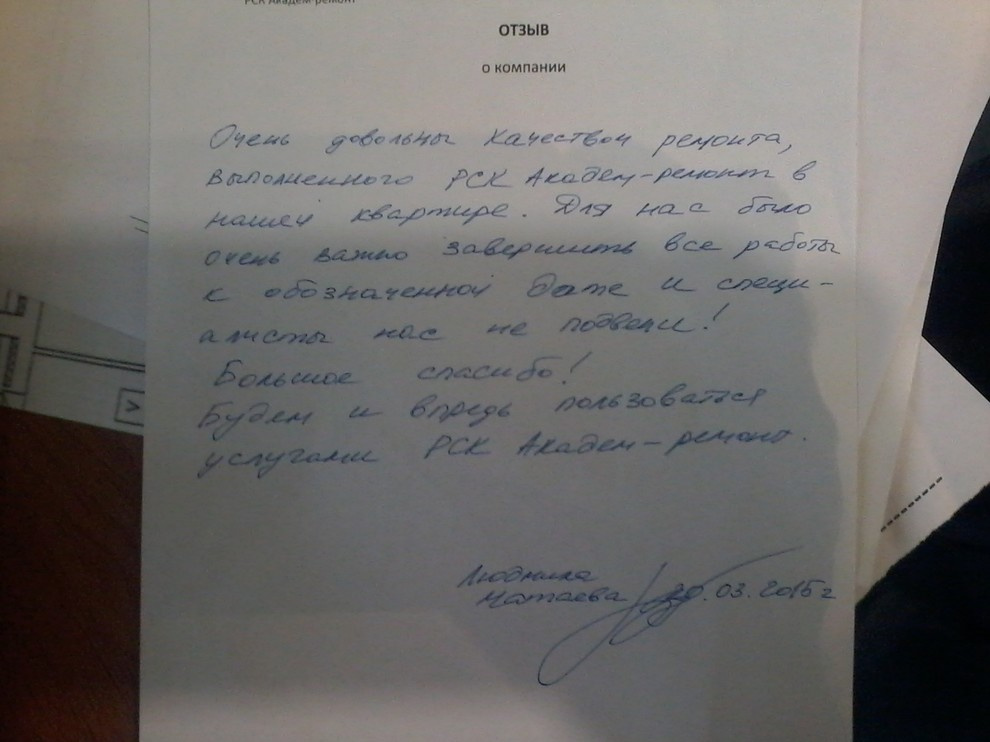 РСК Академ-ремонт
ОТЗЫВ
о компании
Очень довольны качеством ремонта,
выполненного РСК Академ-ремонт в
нашей квартире. Для нас было
очень важно завершить все работы
к обозначенной дате и специ-
алисты нас не подвели!
Большое спасибо!
Будем и впредь пользоваться
услугами РСК Академ-ремонт.
Людмила
Матаева 20.03.2015 г